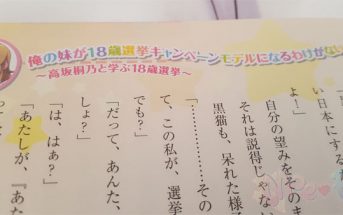 俺の妹が18歳選挙キャンペーンモデルになるわけがない
～高坂桐乃と学ぶ18歳選挙～
い日本にする
よ！」
自分の望みをそのま
それは説得じゃな
黒猫も、呆れた様
「…………その
て、この私が、選挙
でも？」
「だって、あんた、
しょ？」
「は、はぁ？」
「あたしが、『あた